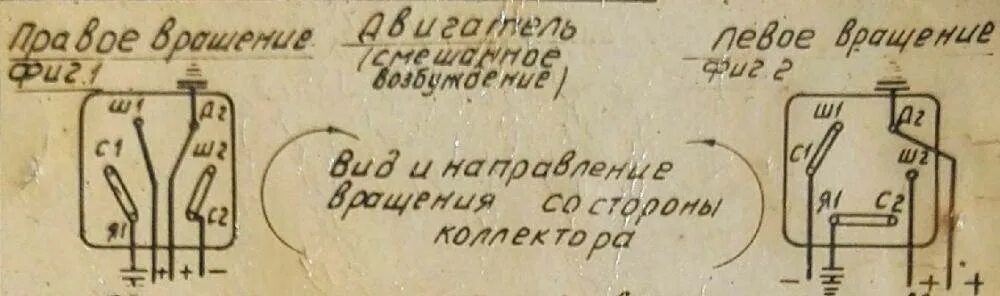 Правое вращение
Фиг.1
Двигатель
(смешанное
возбуждение)
Левое вращение
Фиг.2
Ш1
Д2
С1
Ш2
Я1
С2
+ + −
Вид и направление
вращения со стороны
коллектора
Ш1
Д2
С1
Ш2
Я1
С2
− + +